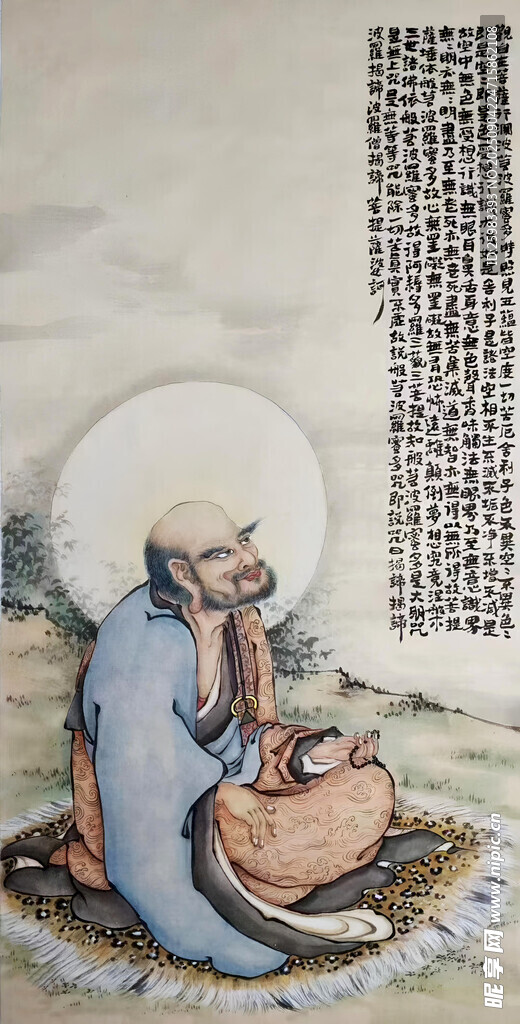 觀自在菩薩行深般若波羅蜜多時照見五蘊皆空度一切苦厄舍利子色不異空：不異色：
即是空：即是色受想行識亦復如是舍利子是諸法空相不生不滅不垢不淨不增不減是
故空中無色無受想行識無眼耳鼻舌身意無色聲香味觸法無眼界乃至無意識界
無：明亦無：明盡乃至無老死亦無老死盡無苦集滅道無智亦無得以無所得故菩提
薩埵依般若波羅蜜多故心無罣礙無罣礙故無有恐怖遠離顛倒夢想究竟涅槃
三世諸佛依般若波羅蜜多故得阿耨多羅三藐三菩提故知般若波羅蜜多是大明咒
是無上咒是無等等咒能除一切苦真實不虛故說般若波羅蜜多咒即說咒曰揭諦揭諦
波羅揭諦波羅僧揭諦菩提薩婆訶
昵享网 www.nipic.cn